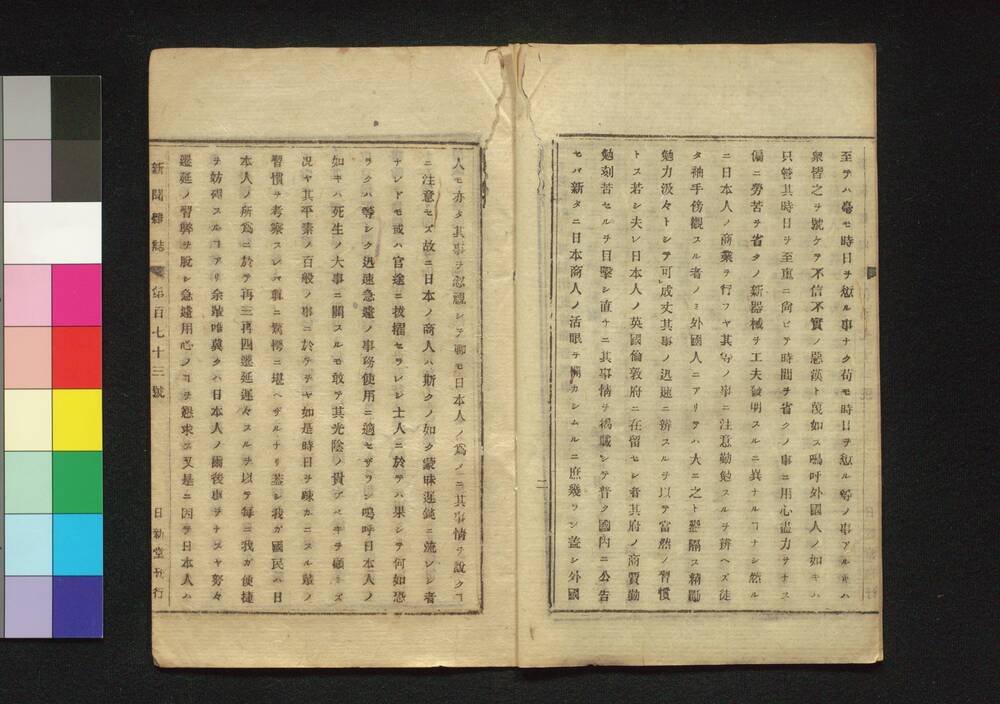 至テハ毫モ時日ヲ愆ル事ナク苟モ時日ヲ愆ル等ノ事アル時ハ
衆皆之ヲ號ケテ不信不實ノ惡漢ト蔑如ス嗚呼外國人ノ如キハ
只管其時日ヲ至重ニ尚ビテ時間ヲ省クノ事ニ用心盡力ヲナス
偏ニ勞苦ヲ省クノ新器械ヲ工夫發明スルニ異ナルヿナシ然ル
ニ日本人ノ商業ヲ行フヤ其等ノ事ニ注意勤勉スルヲ辨ヘズ徒
タ袖手傍觀スル者ノミ外國人ニアリテハ大ニ之ト懸隔ス精勵
勉力汲々トシテ可成丈其事ノ迅速ニ辨スルヲ以テ當然ノ習慣
トス若シ夫レ日本人ノ英國倫敦府ニ在留セシ者其府ノ商賈勤
勉刻苦セルヲ目擊シ直チニ其事情ヲ揭載シテ普ク國內ニ公告
セバ新タニ日本商人ノ活眼ヲ開カシムルニ庶幾ラン蓋シ外國
二
人モ亦タ其事ヲ忽視シテ聊モ日本人ノ爲メニ其事情ヲ說クヿ
ニ注意セズ故ニ日本ノ商人ハ斯クノ如ク蒙昧遲鈍ニ流レシ者
ナレドモ或ハ官途ニ拔擢セラレシ士人ニ於テハ果シテ何如恐
ラクハ等シク迅速急遽ノ事務使用ニ適セザラン嗚呼日本人ノ
如キハ死生ノ大事ニ關スルモ敢テ其光陰ノ貴フベキヲ顧ミズ
況ヤ其平素ノ百般ノ事ニ於テヲヤ如是時日ヲ昧カニスル輩ノ
習慣ヲ考察スレバ實ニ驚愕ニ堪ヘザルナリ蓋シ我ガ國民ハ日
本人ノ所爲ニ於テ再三再四遷延遲々スルヲ以テ每ニ我ガ便捷
ヲ妨碍スルヿアリ余輩唯冀クハ日本人ノ爾後事ヲナスヤ努々
遷延ノ習弊ヲ脫シ急遽用心ノヿヲ懇求ス又是ニ因テ日本人ハ
新聞雜誌 第百七十三號 日新堂刊行